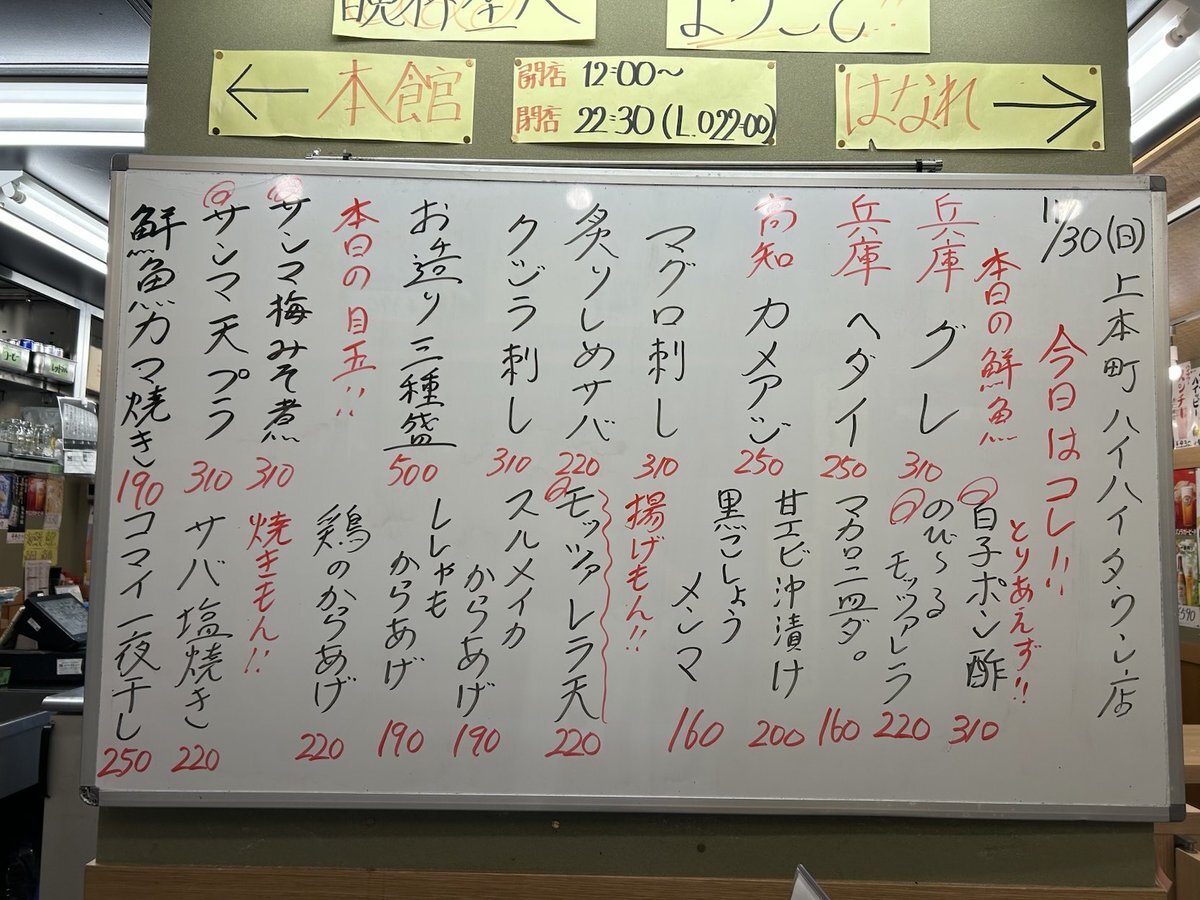 ようこそ!!
← 本館
開店 12:00〜
閉店 22:30 (L.O22:00)
はなれ →
11/30(日) 上本町 ハイハイタウン店
今日はコレ!!!
本日の鮮魚
兵庫 グレ 310
兵庫 ヘダイ 250
高知 カメアジ 250
マグロ刺し 310
炙りしめサバ 220
クジラ刺し 310
お造り三種盛 500
本日の目玉!!
サンマ梅みそ煮 310
サンマ天プラ 310
鮮魚カマ焼き 190
とりあえず!!
白子ポン酢 310
のび〜る
モッツァレラ 220
マカロニサラダ。 160
甘エビ沖漬け 200
黒こしょう
メンマ 160
揚げもん!!
モッツァレラ天 220
スルメイカ
からあげ 190
ししゃも
からあげ 190
鶏のからあげ 220
焼きモん!!
サバ塩焼き 220
コマイ一夜干し 250